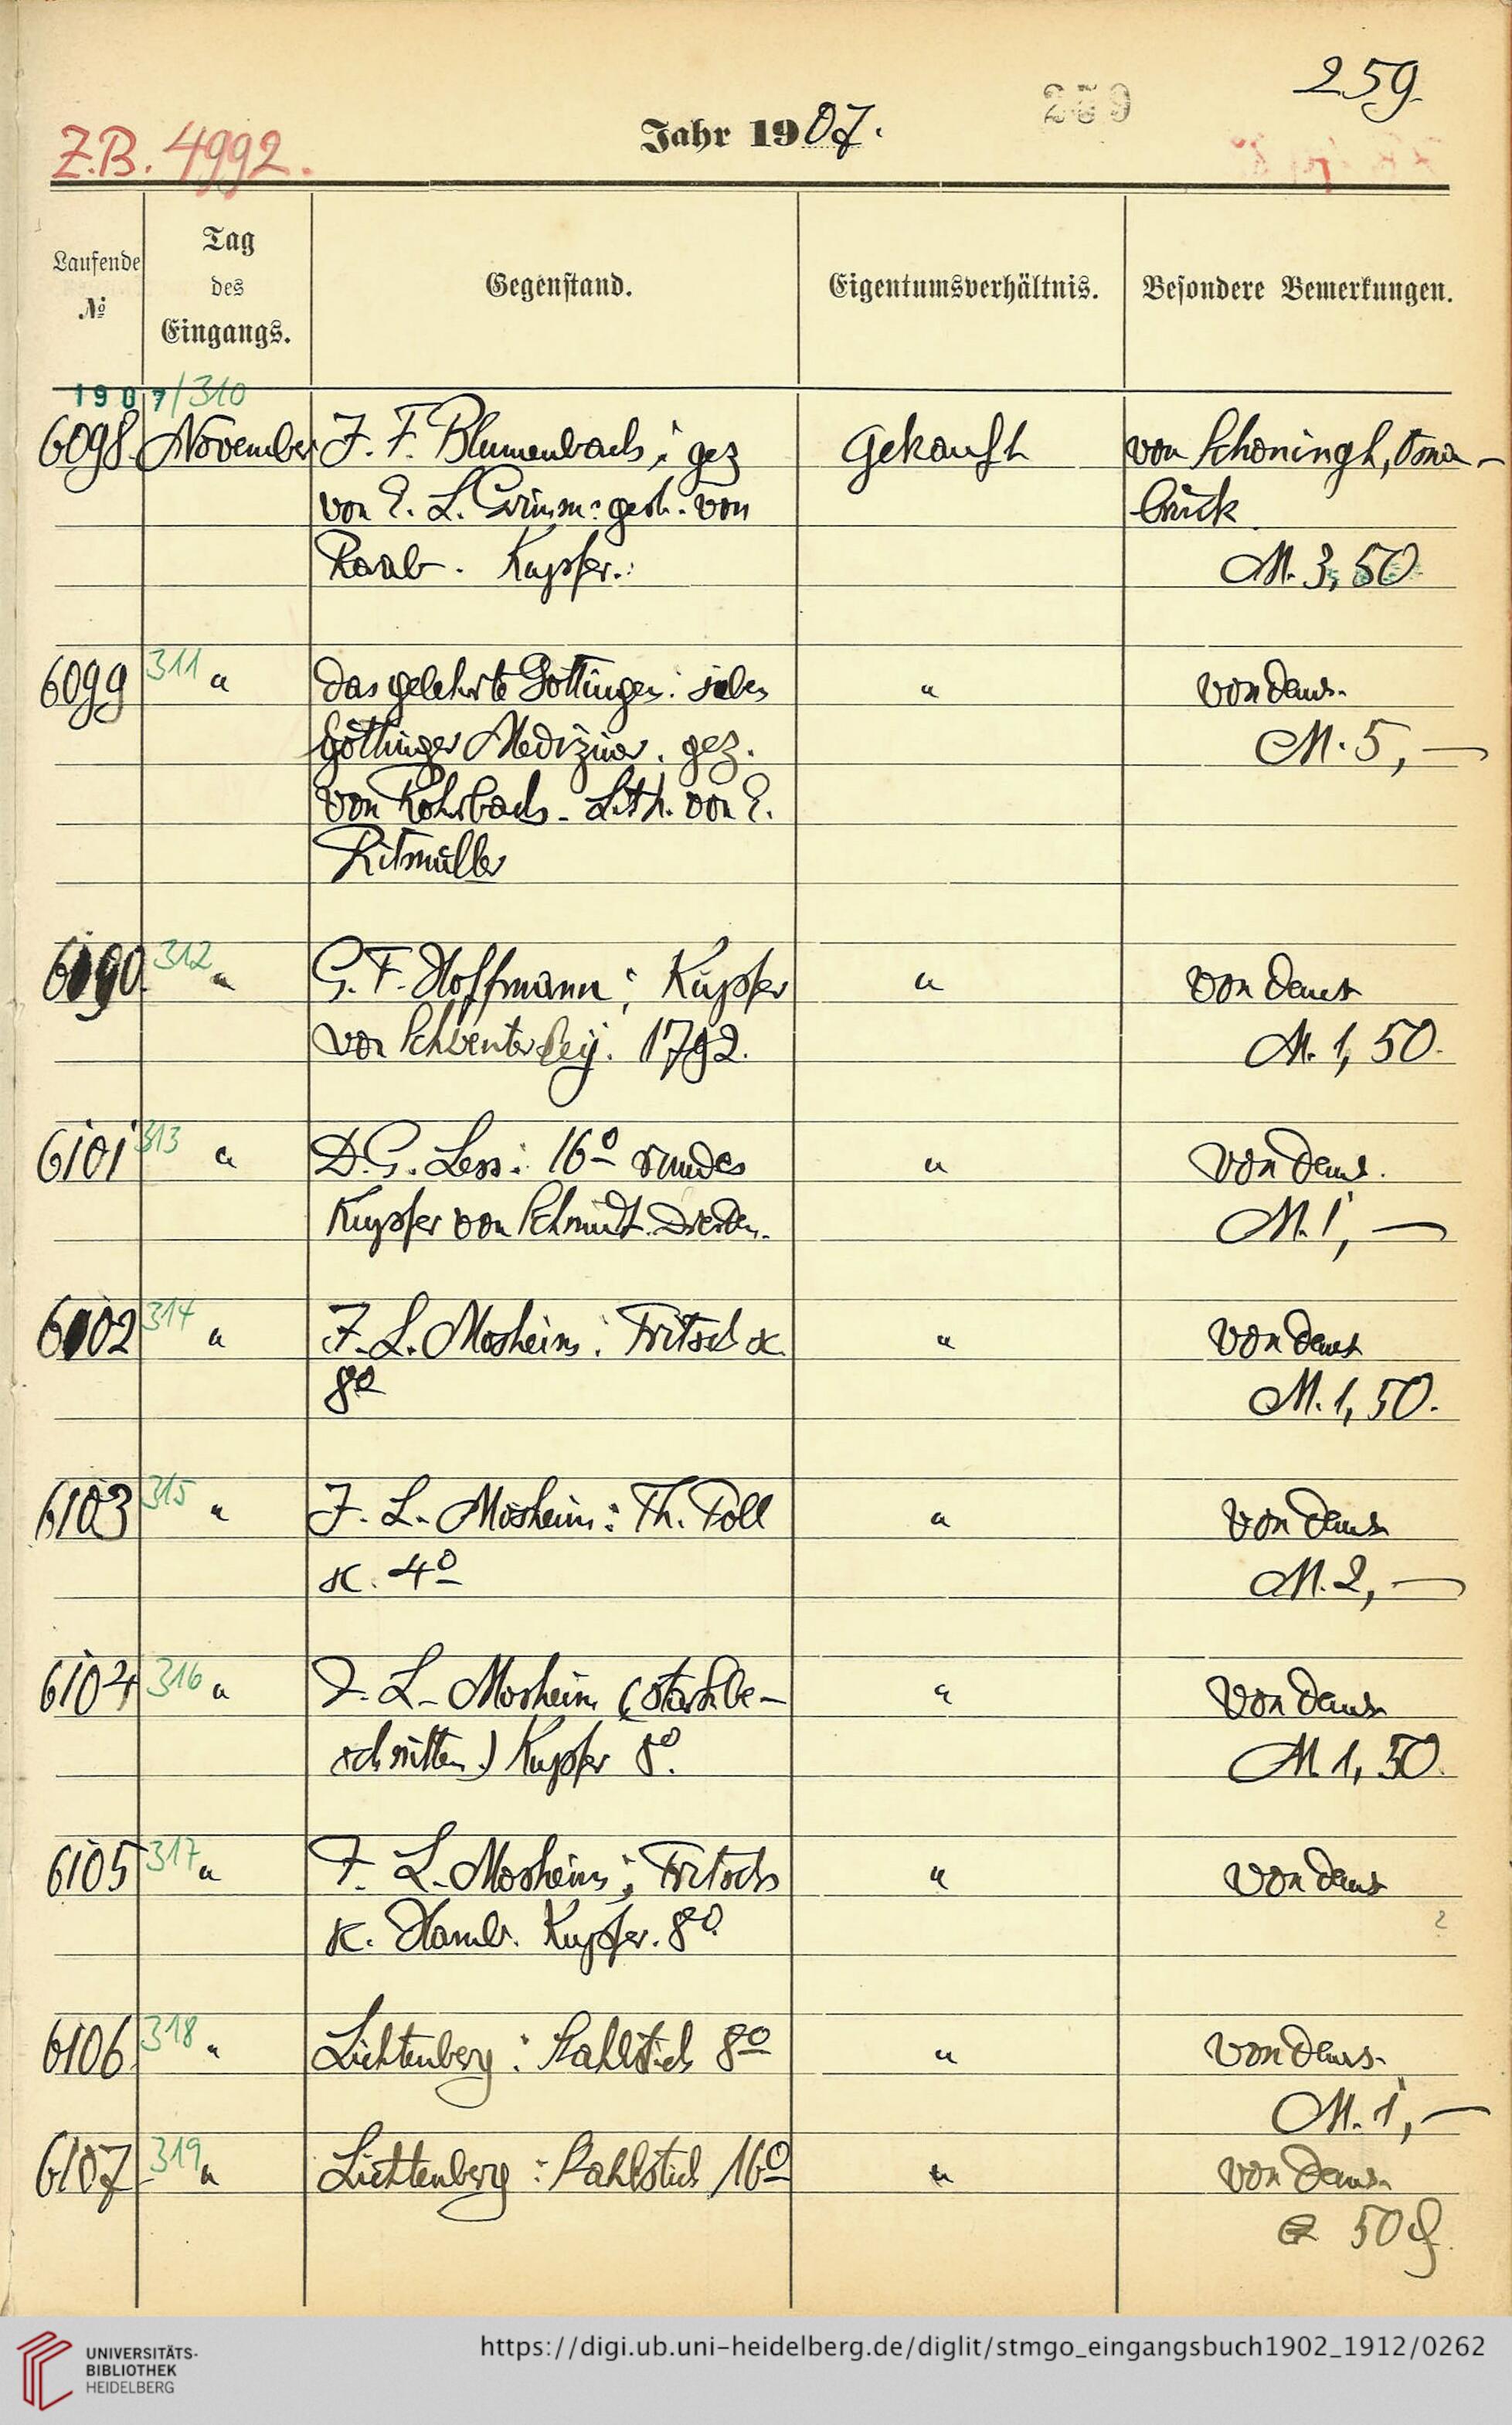 259.
259
Z.B. 4992.
Jahr 1907.
Laufende
№
Tag
des
Eingangs.
Gegenstand.
Eigentumsverhältnis.
Besondere Bemerkungen.
1907/310
6098. November J. F. Blumenbach; gez Gekauft von Schöningh, Osna-
von E. L. Grimm: gest. von brück
Raab. Kupfer. M. 3,50
6099 311 " Das gelehrte Göttingen: sieben " von dems.
Göttinger Mediziner. gez. M. 5,—
von Rohrbach. Lith. von E.
Ritmüller
6090. 312 " G. F. Hoffmann; Kupfer " von dems
von Schwenterley. 1792. M. 1,50.
6101 313 " D. G. Less: 16º rundes " von dems.
Kupfer von Schmidt. Dresden. M. 1,—
6102 314 " J. L. Mosheim: Fritsch sc. " von dems
8º M. 1,50.
6103 315 " J. L. Mosheim: Th. Poll " von dems
sc. 4º M. 2,—
6104 316 " J. L. Mosheim (stark be- " von dems
schnitten) Kupfer 8º. M 1,50.
6105 317 " J. L. Mosheim; Fritsch " von dems
sc. Hamb. Kupfer. 8º. ?
6106 318 " Lichtenberg: Stahlstich 8º " von dems.
M. 1,—
6107 319 " Lichtenberg: Stahlstich 16º " von dems
50 ₰.
UNIVERSITÄTS-
BIBLIOTHEK
HEIDELBERG
https://digi.ub.uni-heidelberg.de/diglit/stmgo_eingangsbuch1902_1912/0262